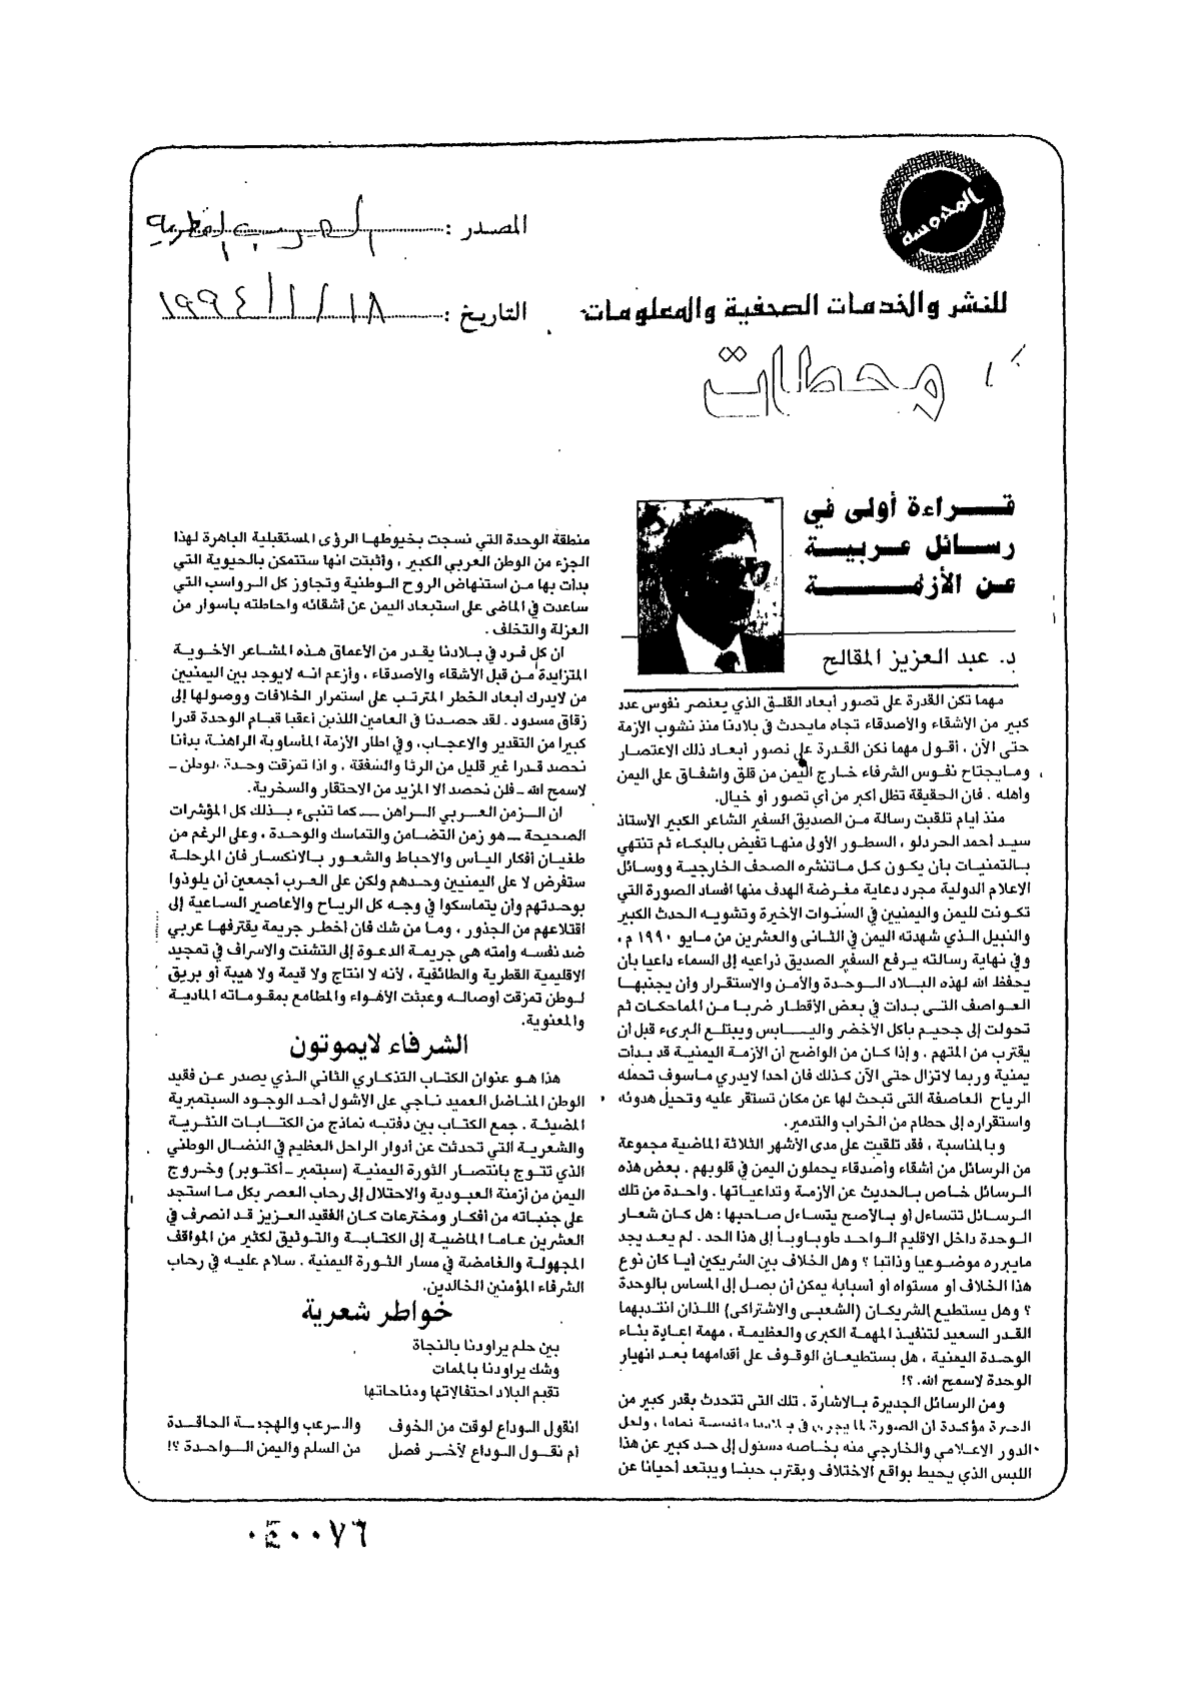 المحروسة
المصدر : العرب القطرية
للنشر والخدمات الصحفية والمعلومات
التاريخ : ١٨ / ١ / ١٩٩٤
محطات
قـــراءة أولى في
رســائل عـربيــة
عـن الأزمــــــة
د. عبد العزيز المقالح
مهما تكن القدرة على تصور أبعاد القلـق الذي يعتصر نفوس عدد
كبير من الأشقاء والأصدقاء تجاه مايحدث في بلادنا منذ نشوب الأزمة
حتى الآن ، أقول مهما تكن القدرة على تصور أبعـاد ذلك الاعتصـار
ومـايجتاح نفـوس الشرفاء خـارج اليمن من قلق واشفـاق على اليمن
وأهله . فان الحقيقة تظل أكبر من أي تصور أو خيال.
منذ أيام تلقيت رسالة مـن الصديق السفير الشاعر الكبير الأستاذ
سيـد أحمد الحردلو ، السطـور الأولى منهـا تفيض بالبكـاء ثم تنتهي
بـالتمنيـات بأن يكـون كـل مـاتنشره الصحف الخارجيـة ووسـائل
الاعلام الدولية مجرد دعاية مغـرضة الهدف منها افساد الصورة التي
تكـونت لليمن واليمنيين في السنـوات الأخيرة وتشويـه الحدث الكبير
والنبيل الـذي شهدته اليمن في الثـانى والعشرين من مـايو ١٩٩٠ م .
وفي نهاية رسالته يـرفع السفير الصديق ذراعيه إلى السماء داعيا بأن
يحفظ الله لهذه البـلاد الـوحدة والأمـن والاستقـرار وأن يجنبهـا
العـواصف التـى بـدأت في بعض الأقطـار ضربـا مـن الماحكـات ثم
تحولت إلى جحيم يأكل الأخضر واليـــابس ويبتلـع البرىء قبل أن
يقترب من المتهم . وإذا كـان من الواضح أن الأزمـة اليمنيـة قد بـدأت
يمنية وربما لاتزال حتى الآن كـذلك فان أحدا لايدري مـاسوف تحمله
الرياح العاصفة التى تبحث لها عن مكان تستقر عليه وتحيل هدوئه
واستقراره إلى حطام من الخراب والتدمير.
وبالمناسبة ، فقد تلقيت على مدى الأشهر الثلاثة الماضية مجموعة
من الرسائل من أشقاء وأصدقاء يحملون اليمن في قلوبهم . بعض هذه
الـرسائل خـاص بـالحديث عن الأزمـة وتداعيـاتها . واحـدة من تلك
الـرسـائل تتسـاءل أو بـالأصح يتسـاءل صـاحبها : هل كـان شعار
الـوحدة داخل الاقليم الـواحـد طوباويـا إلى هذا الحد . لم يعـد يجد
مايبرره موضـوعيا وذاتيا ؟ وهل الخلاف بين الشريكين أيـا كان نوع
هذا الخلاف أو مستواه أو أسبابه يمكن أن يصل إلى المساس بالوحدة
؟ وهل يستطيع الشريكـان (الشعبـى والاشتراكى) اللـذان انتـدبهما
القـدر السعيد لتنفيـذ المهمـة الكبرى والعظيمـة ، مهمة إعـادة بنـاء
الوحـدة اليمنية ، هل يستطيعـان الوقـوف على أقدامهما بعـد انهيار
الوحدة لاسمح الله. ؟!
ومن الرسائل الجديرة بـالاشارة . تلك التى تتحدث بقدر كبير من
الحيرة مؤكـدة ان الصورة لما يجري في بـلادنا ملتبسـة تماما ، ولعل
الدور الإعـلامي والخارجي منه بخـاصه مسئول إلى حـد كبير عن هذا
اللبس الذي يحيط بواقع الاختلاف ويقترب حينـا ويبتعد أحيانا عن
منطقة الوحدة التي نسجت بخيوطهـا الرؤى المستقبلية الباهرة لهذا
الجزء من الوطن العربي الكبير ، وأثبتت انها ستتمكن بالحيوية التي
بدأت بها مـن استنهاض الروح الـوطنية وتجاوز كل الـرواسب التي
ساعدت في الماضى على استبعاد اليمن عن أشقائه واحاطته بأسوار من
العزلة والتخلف .
ان كل فـرد في بـلادنا يقـدر من الأعماق هـذه المشـاعر الأخـويـة
المتزايدة مـن قبل الأشقاء والأصدقاء ، وأزعم انـه لايوجد بين اليمنيين
من لايدرك أبعاد الخطر المترتـب على استمرار الخلافات ووصولها إلى
زقاق مسدود . لقد حصـدنا في العامين اللذين أعقبا قيـام الوحدة قدرا
كبيرا من التقدير والاعجاب، وفي اطار الأزمة المأساوية الراهنـة بدأنا
نحصد قـدرا غير قليل من الرثا والشفقة . واذا تمزقت وحـدة الوطن ـ
لاسمح الله ـ فلن نحصد الا المزيد من الاحتقار والسخرية.
ان الـزمن العـربي الـراهن ـ كما تنبىء بـذلك كل المؤشرات
الصحيحة ـ هو زمن التضـامن والتماسك والوحـدة ، وعلى الرغم من
طغيـان أفكار اليـأس والاحباط والشعـور بـالانكسـار فان المرحلـة
ستفرض لا على اليمنيين وحـدهم ولكن على العـرب أجمعين أن يلوذوا
بوحدتهم وأن يتماسكوا في وجـه كل الريـاح والأعاصير السـاعية إلى
اقتلاعهم من الجذور ، ومـا من شك فان أخطـر جريمة يقترفهـا عربي
ضد نفسـه وأمته هى جريمـة الدعوة إلى التشتت والاسراف في تمجيد
الاقليمية القطرية والطائفية ، لأنه لا انتاج ولا قيمة ولا هيبة أو بريق
لـوطن تمزقت أوصالـه وعبثت الأهـواء والمطامع بمقـوماته الماديـة
والمعنوية.
الشرفاء لايموتون
هذا هـو عنوان الكتاب التذكاري الثاني الـذي يصدر عـن فقيد
الوطن المنـاضل العميد نـاجي على الأشول أحـد الوجـود السبتمبرية
المضيئـة . جمع الكتاب بين دفتيه نماذج من الكتـابـات النثـريـة
والشعرية التي تحدثت عن أدوار الراحل العظيم في النضـال الوطني
الذي تتـوج بانتصـار الثورة اليمنية (سبتمبر ـ أكتـوبر) وخـروج
اليمن من أزمنة العبـودية والاحتلال إلى رحاب العصر بكل مـا استجد
على جنباته من أفكار ومخترعات كـان الفقيد العـزيز قـد انصرف في
العشرين عـامـا الماضيـة إلى الكتابـة والتـوثيق لكثير من المواقف
المجهولـة والغامضة في مسار الثـورة اليمنية . سـلام عليـه في رحاب
الشرفاء المؤمنين الخالدين.
خواطر شعرية
بين حلم يراودنا بالنجاة
وشك يراودنا بالممات
تقيم البلاد احتفالاتها ومناحاتها
انقول الـوداع لوقت من الخوف والـرعب والهجمـة الحاقـدة
أم نقـول الـوداع لآخـر فصل من السلم واليمن الـواحـدة ؟!
٠٤٠٠٧٦